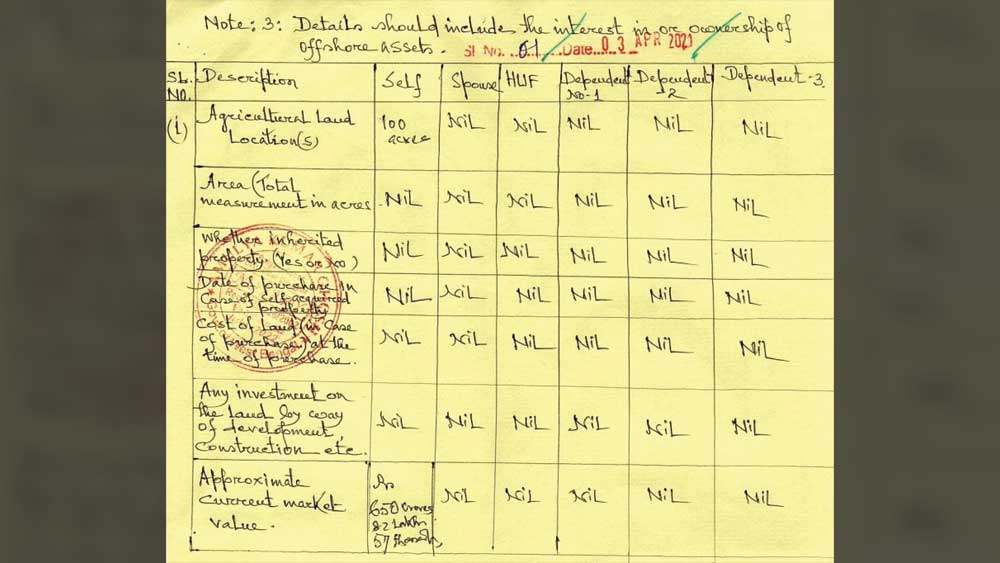 Note: 3: Details should include the interest in or ownership of
offshore assets. Sl No. 01 Date 03 APR 2021
SL. NO. Description Self Spouse HUF Dependent No-1 Dependent 2 Dependent-3
(i) Agricultural Land 100 NiL NiL NiL NiL NiL
Location(s) acres
Area (Total
measurement in acres NiL NiL NiL NiL NiL NiL
Whether inherited
property (Yes or No) NiL NiL NiL NiL NiL NiL
Date of purchase in
Case of self-acquired NiL NiL NiL NiL NiL NiL
property
Cost of Land (in Case
of purchase) at the NiL NiL NiL NiL NiL NiL
time of purchase.
Any investment on
the Land by way
of development, NiL NiL NiL NiL NiL NiL
Construction etc.
Approximate
current market NiL NiL NiL NiL NiL
value. 650 Crores
82 Lakh
57
West Bengal